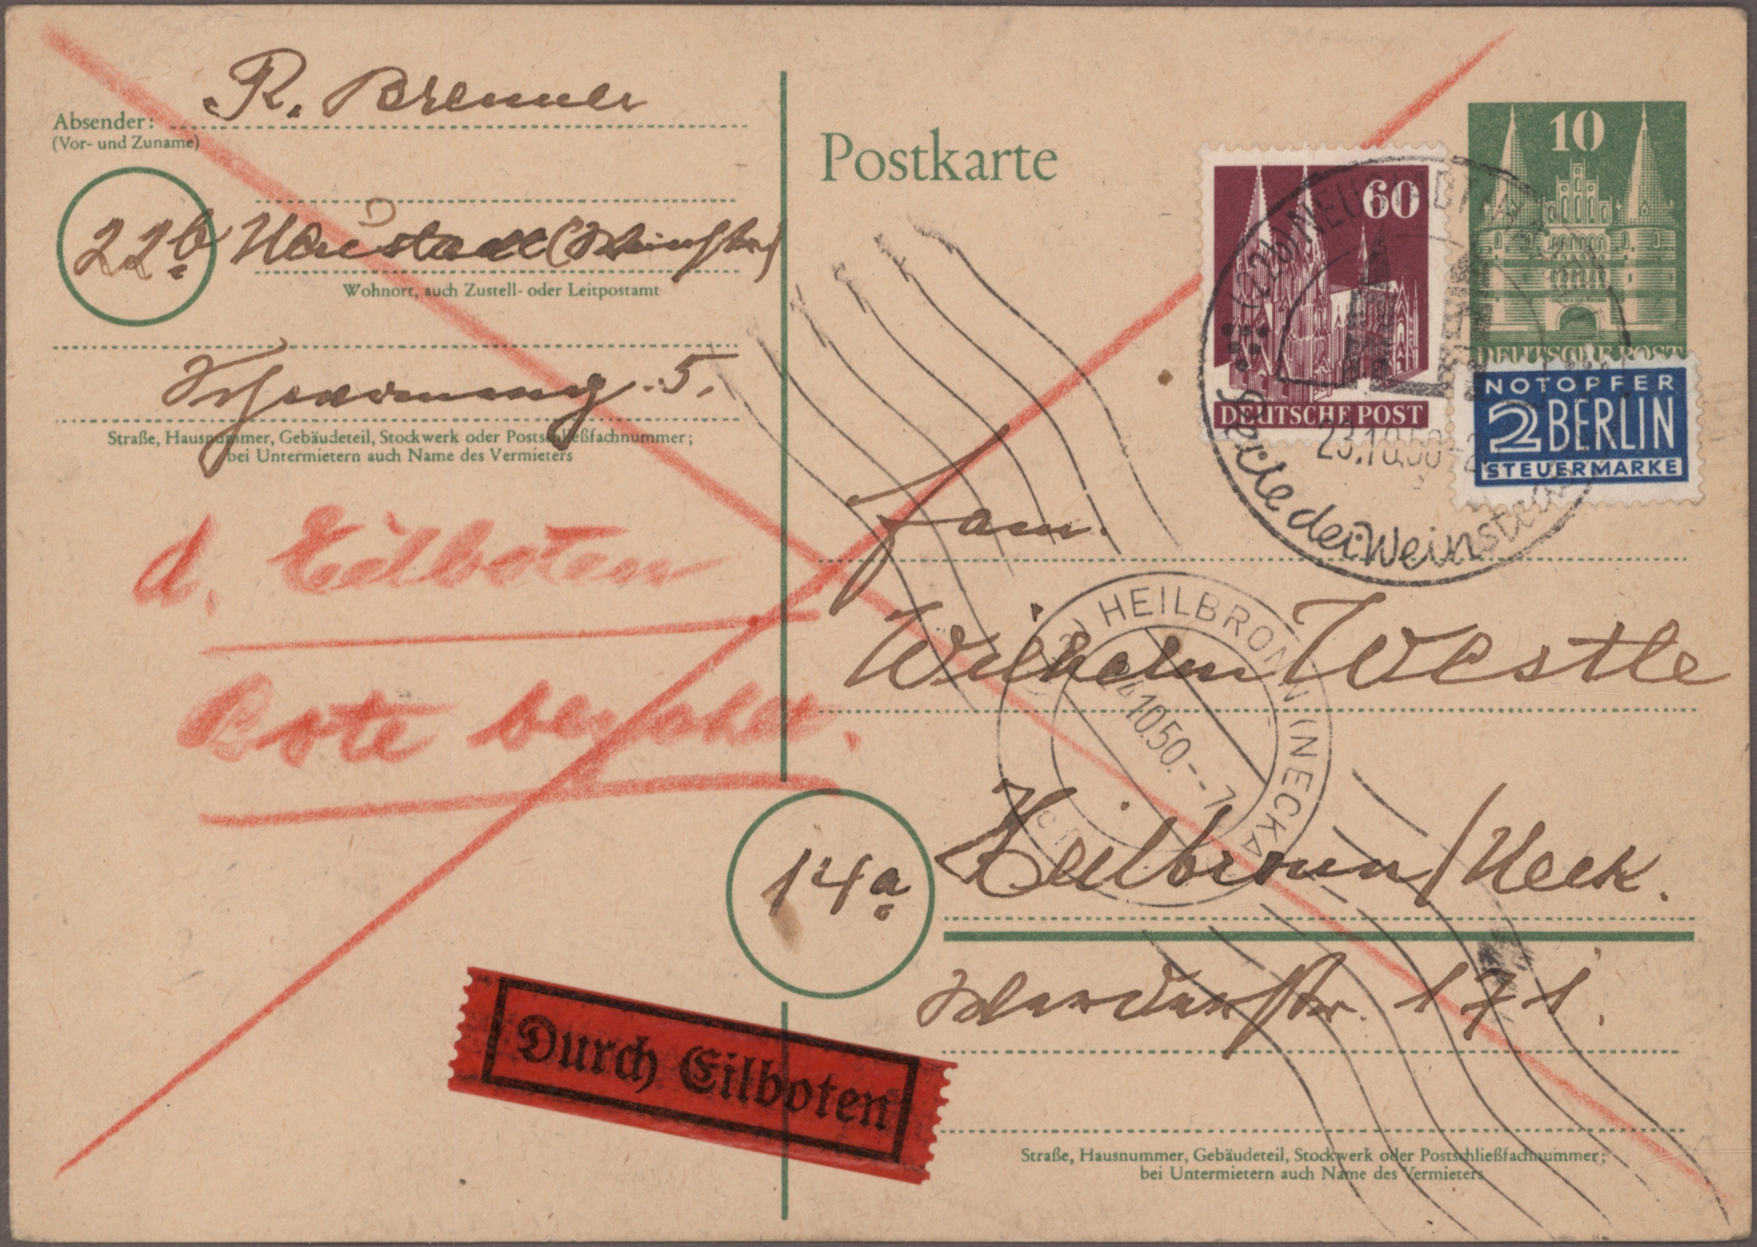 R. Brenner
Absender:
(Vor- und Zuname)
22b Neustadt (Weinstr.)
Wohnort, auch Zustell- oder Leitpostamt
5.
Straße, Hausnummer, Gebäudeteil, Stockwerk oder Postschließfachnummer;
bei Untermietern auch Name des Vermieters
d. Eilboten
Bote bezahlt.
Durch Eilboten
Postkarte
60
DEUTSCHE POST
10
DEUTSCHE POST
NOTOPFER
2 BERLIN
STEUERMARKE
(22b) NEUSTADT
23.10.50
Perle der Weinstraße
Fam.
Wilhelm Westle
HEILBRONN (NECKAR)
24.10.50.--7
14a Heilbronn/Neck.
Werderstr. 171.
Straße, Hausnummer, Gebäudeteil, Stockwerk oder Postschließfachnummer;
bei Untermietern auch Name des Vermieters